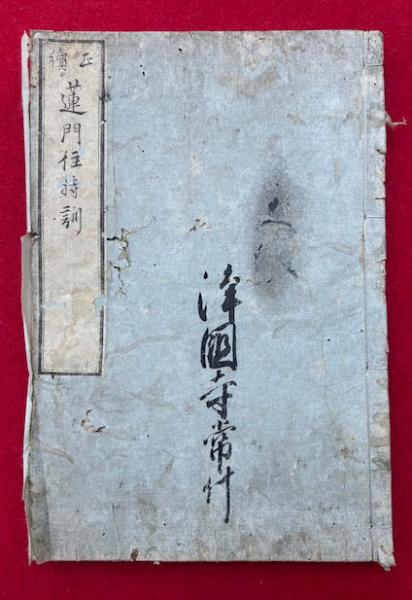 正續
蓮門住持訓
浄國寺常什